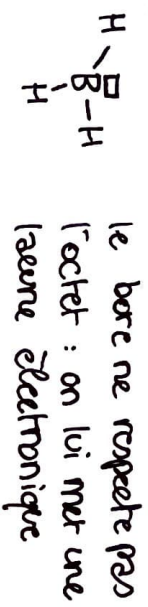 H
B-H
H
le bore ne respecte pas
l'octet : on lui met une
lacune électronique